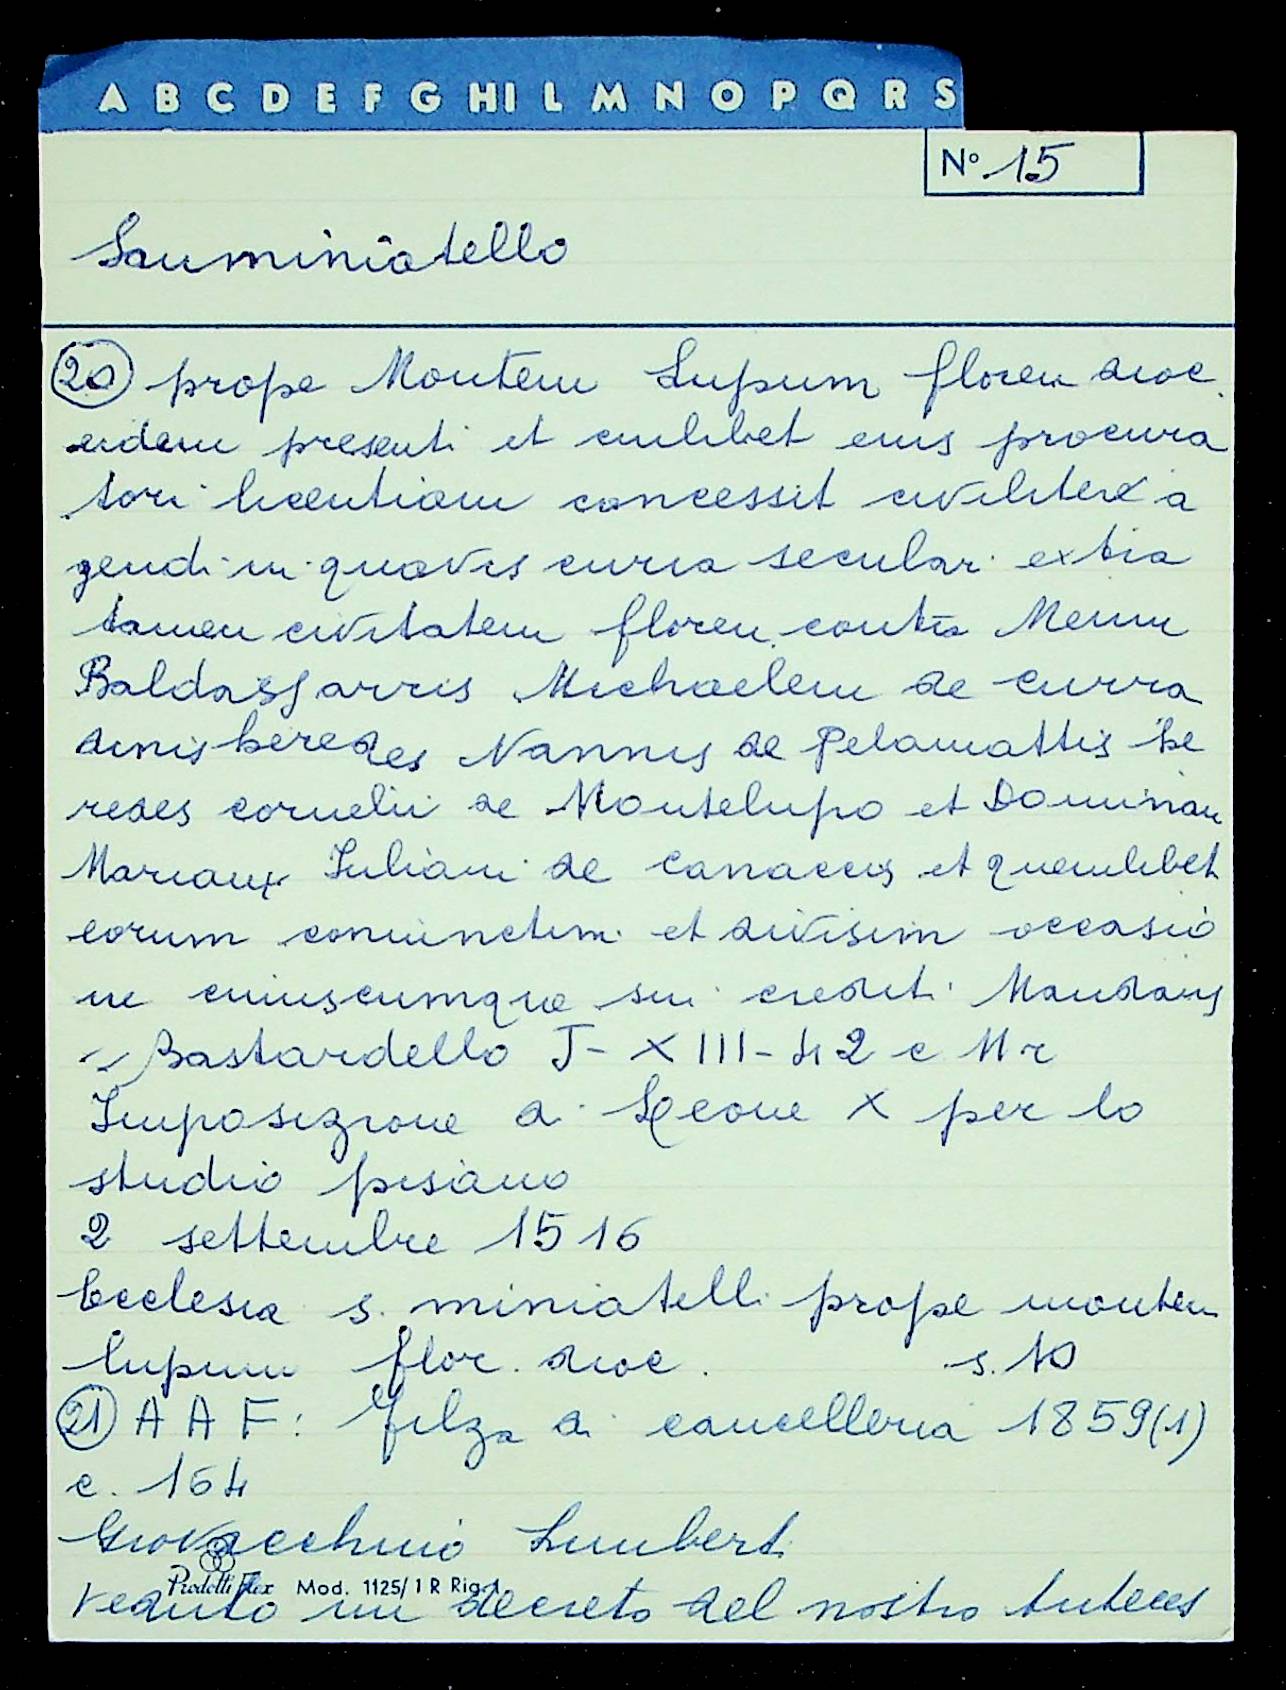 A B C D E F G HI L M N O P Q R S
N° 15
Sanminiatello
20 prope Montem Lupum floren dioc.
eidem presenti et cuilibet eius procura
tori licentiam concessit civiliter a
gendi in quavis curia seculari extra
tamen civitatem floren. contra Menm
Baldassarris Michaelem de Curra
dinis heredes Nannis de Pelamattis he
redes cornelii de Montelupo et Dominam
Mariam Iuliani de Canaccis et quemlibet
eorum coniunctim et divisim occasio
ne cuiuscumque sui crediti Mandans
Bastardello J- XIII-42 c 11 r
Imposizione di Leone X per lo
studio pisano
2 settembre 1516
Ecclesia s. miniatelli prope montem
lupum flor. dioc. s. 10
21 A A F: Filza di cancelleria 1859(1)
c. 164
Giovacchino Limberti
Prodotti Flex Mod. 1125/1 R Rig.
veduto un decreto del nostro anteces